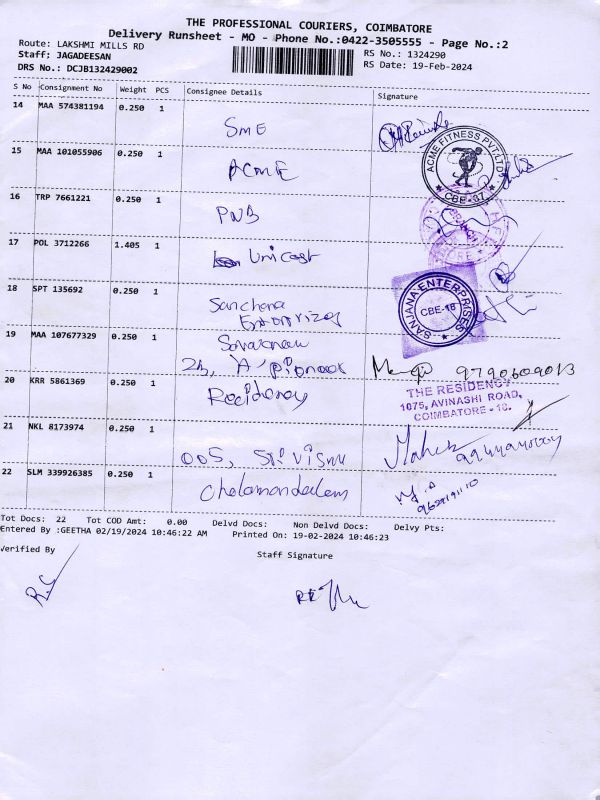 THE PROFESSIONAL COURIERS, COIMBATORE
Delivery Runsheet - MO - Phone No.:0422-3505555 - Page No.:2
Route: LAKSHMI MILLS RD
RS No.: 1324290
Staff; JAGADEESAN
RS Date: 19-Feb-2024
DRS No.: DCJB132429002
S No Consignment No Weight PCS Consignee Details Signature
14 MAA 574381194 0.250 1
SME
15 MAA 101055906 0.250 1
ACME
ACME FITNESS PVT.LTD. CBE-37
16 TRP 7661221 0.250 1
PNB
17 POL 3712266 1.405 1
Unicast
18 SPT 135692 0.250 1
Sanchana
Enterprizes
SANJANA ENTERPRISES CBE-18
19 MAA 107677329 0.250 1
Saravanan
2B, 'A' Pioneer
9790609013
20 KRR 5861369 0.250 1
Recidency
THE RESIDENCY
1075, AVINASHI ROAD,
COIMBATORE - 18.
21 NKL 8173974 0.250 1
OOS, Sri Vishnu
Mahesh
22 SLM 339926385 0.250 1
Cholamandalam
Tot Docs: 22 Tot COD Amt: 0.00 Delvd Docs: Non Delvd Docs: Delvy Pts:
Entered By :GEETHA 02/19/2024 10:46:22 AM Printed On: 19-02-2024 10:46:23
Verified By
Staff Signature